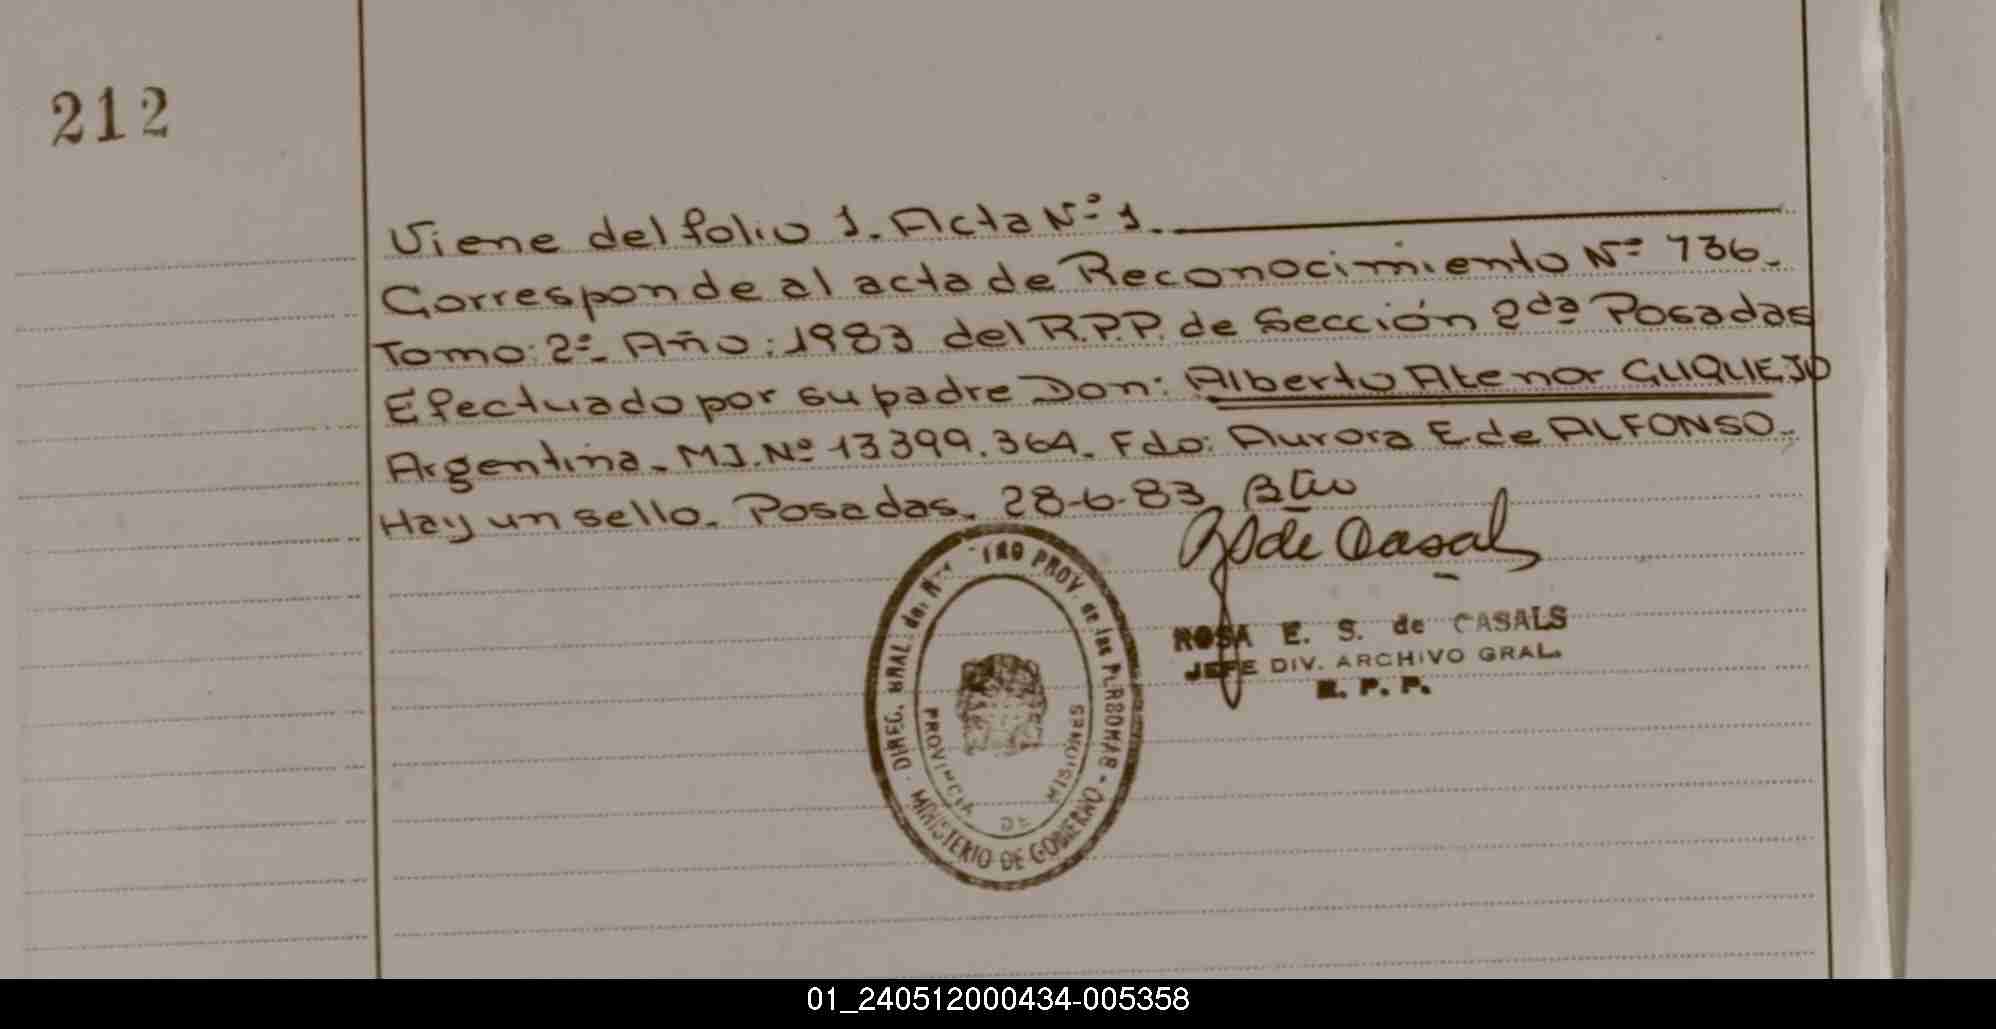 212
Viene del folio 1. Acta Nº 1.
Corresponde al acta de Reconocimiento Nº 736.
Tomo: 2º. Año: 1983 del R.P.P. de Sección 2da Posadas
Efectuado por su padre Don: Alberto Atenor CUQUEJO
Argentina. M.I. Nº 13399.364. Fdo: Aurora E. de ALFONSO.
Hay un sello. Posadas. 28-6-83
de Casals
ROSA E. S. de CASALS
JEFE DIV. ARCHIVO GRAL.
R. P. P.
DIREC. GRAL. del PROV. de las PERSONAS - MINISTERIO DE GOBIERNO -
PROVINCIA DE MISIONES
01_240512000434-005358